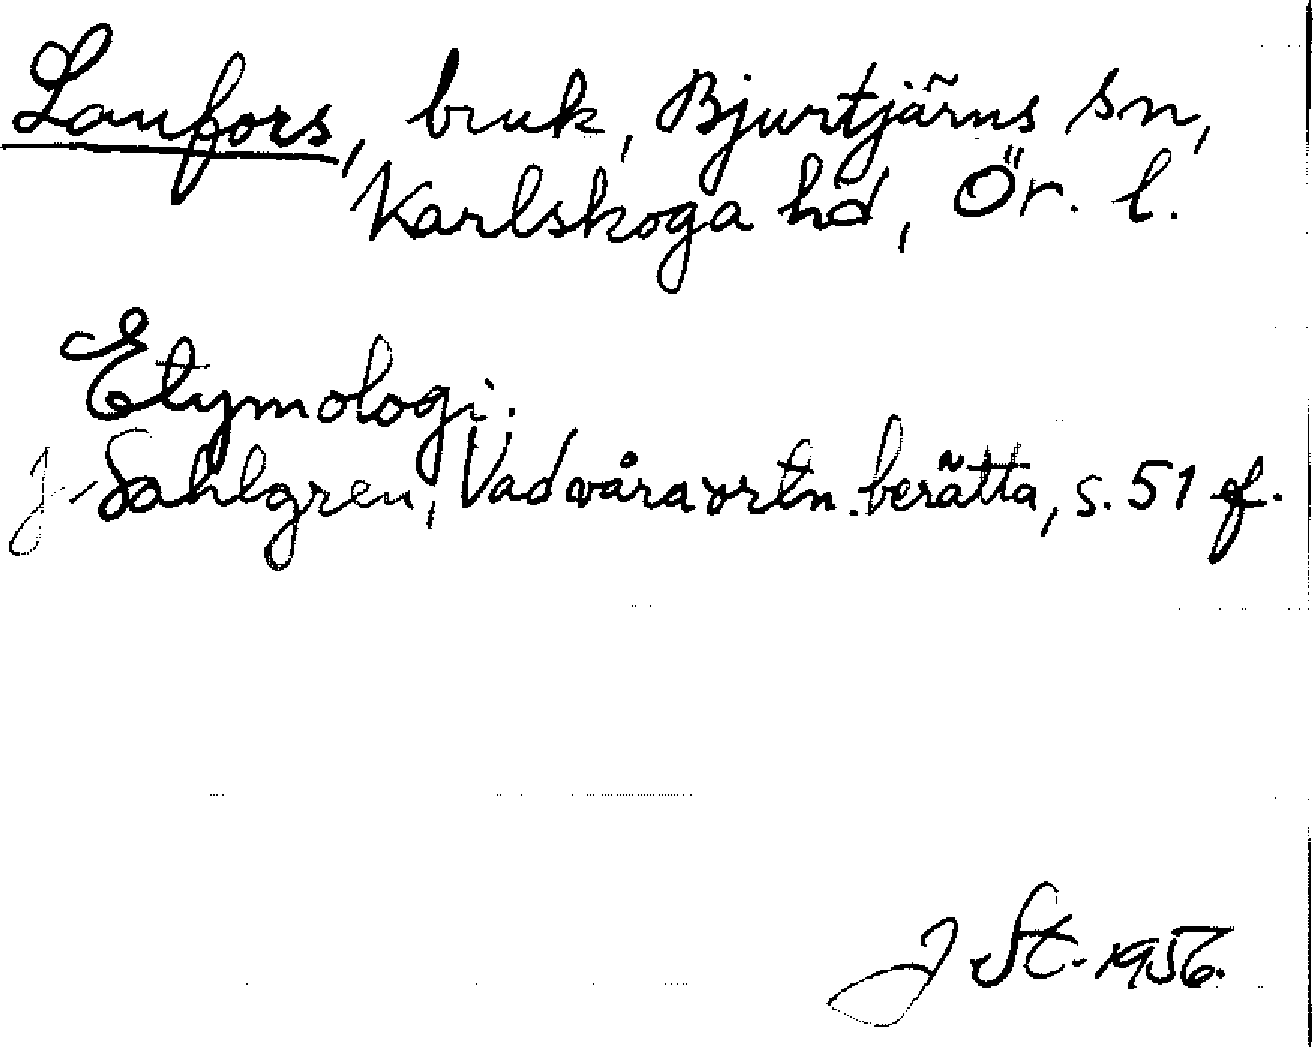 Lanfors, bruk, Bjurtjärns sn,
Karlskoga hd, Ör. l.
Etymologi.
J. Sahlgren, Vad våra ortn. berätta, s. 51 f.
J St. 1956.